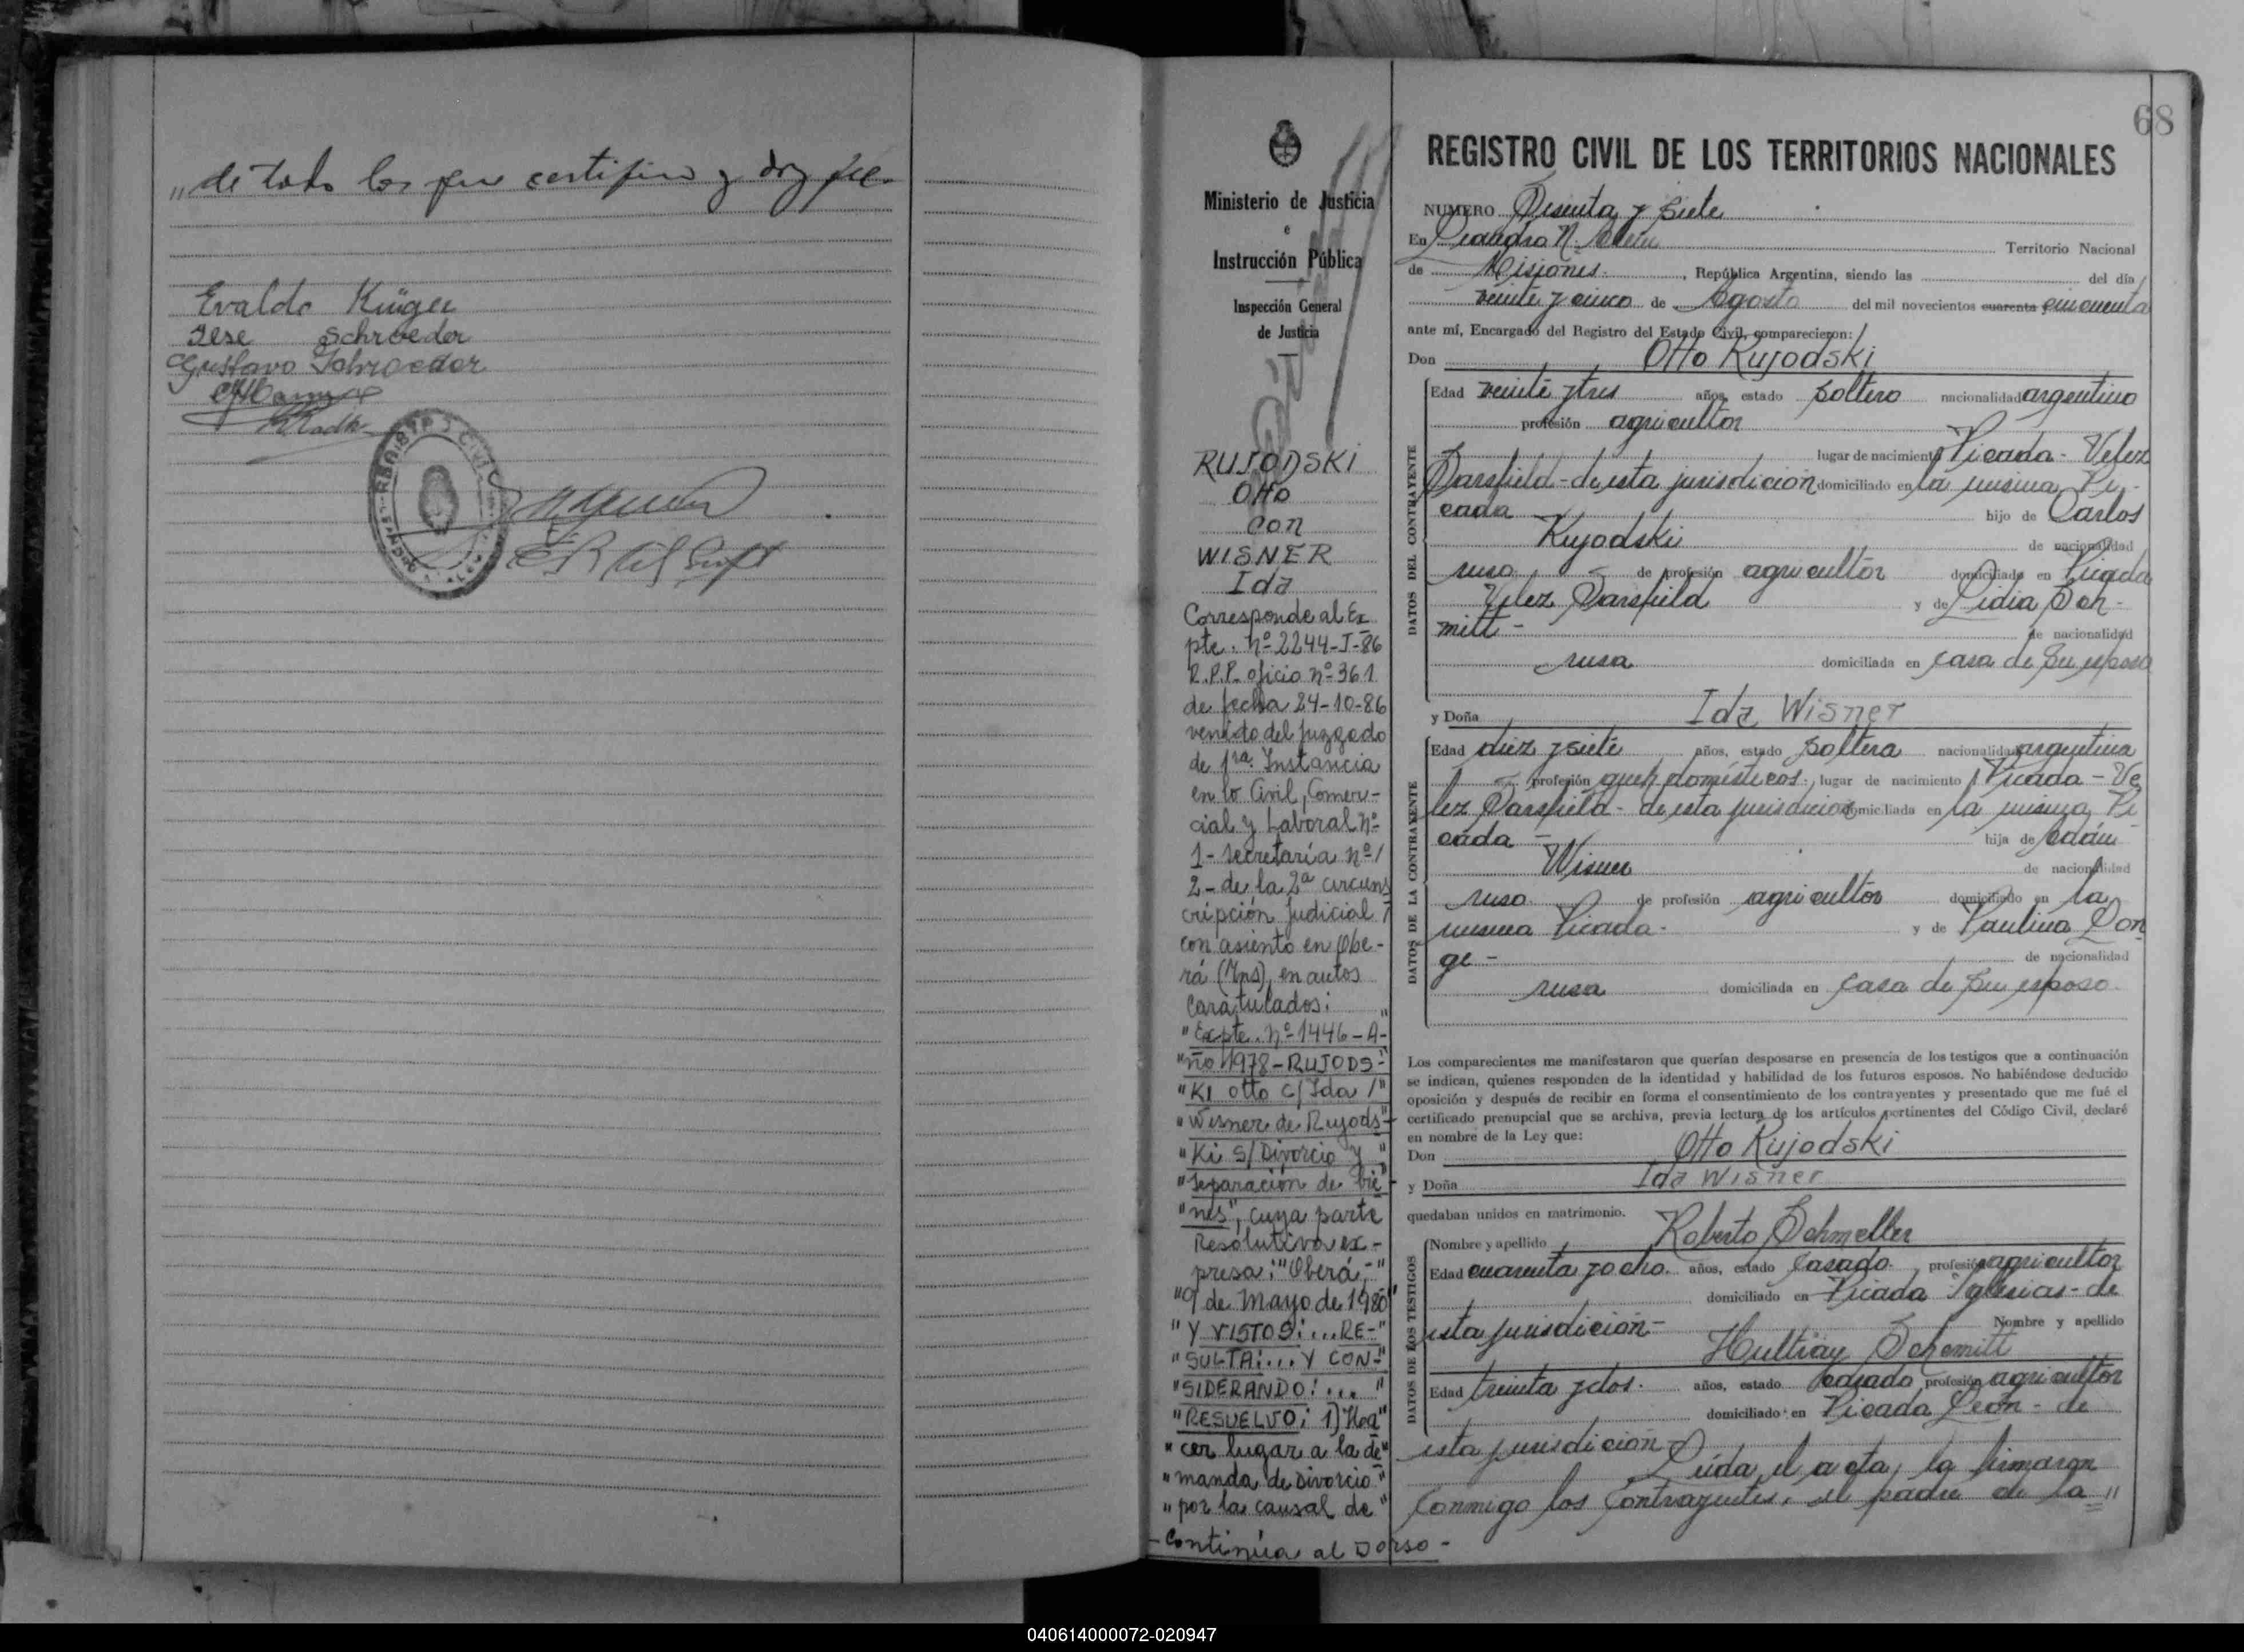 „de todo lo que certifico y doy fé.
Evaldo Krüger
Ilse Schroeder
Gustavo Schroeder
REGISTRO CIVIL
68
Ministerio de Justicia
e
Instrucción Pública
Inspección General
de Justicia
RUJODSKI
Otto
con
WISNER
Ida
Corresponde al Ex
pte. nº 2244-I-86
R.P.P. oficio nº 361
de fecha 24-10-86
venido del Juzgado
de 1ra. Instancia
en lo Civil, Comer-
cial y Laboral nº
1- Secretaría nº/
2- de la 2ª circuns
cripción Judicial /
con asiento en Obe-
rá (Mns), en autos
caratulados:
"Expte. nº 1446-A-"
"ño 1978-RUJODS-"
"KI Otto c/Ida /"
"Wisner de Rujods-"
"Ki S/Divorcio y "
"Separación de bie"
"nes", cuya parte
Resolutiva ex-
presa: "Oberá,-"
"9 de Mayo de 1980"
"Y VISTOS:...RE-"
"SULTA:...Y CON-"
"SIDERANDO:... "
"RESUELVO: 1) Ha"
"cer lugar a la de"
"manda de Divorcio "
"por la causal de "
- Continúa al Dorso -
REGISTRO CIVIL DE LOS TERRITORIOS NACIONALES
NUMERO Sesenta y Siete
En Leandro N. Alem Territorio Nacional
de Misiones. , República Argentina, siendo las del día
veinte y cinco de Agosto del mil novecientos cuarenta cincuenta
ante mí, Encargado del Registro del Estado Civil, comparecieron:
Don Otto Rujodski
DATOS DEL CONTRAYENTE
Edad veinte y tres años, estado Soltero nacionalidad argentino
profesión agricultor
lugar de nacimiento Picada - Velez
Sarsfield - de esta jurisdicion domiciliado en la misma Pi-
cada hijo de Carlos
Rujodski de nacionalidad
ruso de profesión agricultor domiciliado en Picada
Velez Sarsfield y de Lidia Sch-
mitt - de nacionalidad
rusa domiciliada en casa de su esposo
y Doña Ida Wisner
DATOS DE LA CONTRAYENTE
Edad diez y siete años, estado Soltera nacionalidad argentina
profesión queh. domésticos. lugar de nacimiento Picada - Ve
lez Sarsfield - de esta jurisdicion domiciliada en la misma Pi
cada - hija de Adan
Wisner de nacionalidad
ruso de profesión agricultor domiciliado en la
misma Picada. y de Paulina Lon
ge - de nacionalidad
rusa domiciliada en casa de su esposo.
Los comparecientes me manifestaron que querían desposarse en presencia de los testigos que a continuación
se indican, quienes responden de la identidad y habilidad de los futuros esposos. No habiéndose deducido
oposición y después de recibir en forma el consentimiento de los contrayentes y presentado que me fué el
certificado prenupcial que se archiva, previa lectura de los artículos pertinentes del Código Civil, declaré
en nombre de la Ley que:
Don Otto Rujodski
y Doña Ida Wisner
quedaban unidos en matrimonio.
DATOS DE LOS TESTIGOS
Nombre y apellido Roberto Schmeller
Edad cuarenta y ocho. años, estado Casado. profesión agricultor
domiciliado en Picada Iglesias - de
esta jurisdicion - Nombre y apellido
Schemitt
Edad treinta y dos. años, estado casado profesión agricultor
domiciliado en Picada León - de
esta jurisdicion -
Leida el acta, la firmaron
conmigo los contrayentes, el padre de la "
040614000072-020947